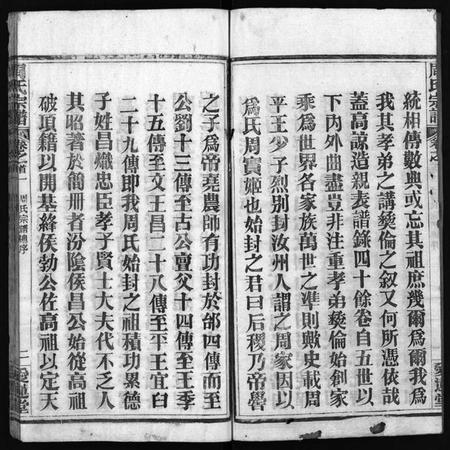 統相傳數典或忘其祖庶幾爾爲爾我爲
我其孝弟之講彜倫之叙又何所憑依哉
蓋高諒造親表譜錄四十餘卷自五世以
下內外曲盡豈非注重孝弟彜倫始創家
乘爲世界各家族萬世之準則歟史載周
平王少子烈別封汝州人謂之周家因以
爲氏周實姬也始封之君曰后稷乃帝嚳
周氏宗譜
卷之首
之子爲帝堯農師有功封於邰四傳而至
公劉十三傳至古公亶父十四傳至王季
十五傳至文王昌二十八傳至平王宜臼
二十九傳即我周氏始封之祖積功累德
子姓昌熾忠臣孝子賢士大夫代不乏人
其昭著於簡冊者汾陰侯昌公始從高祖
破項籍以開基絳侯勃公佐高祖以定天
周氏宗譜
卷之首
周氏宗譜總序
二
愛蓮堂